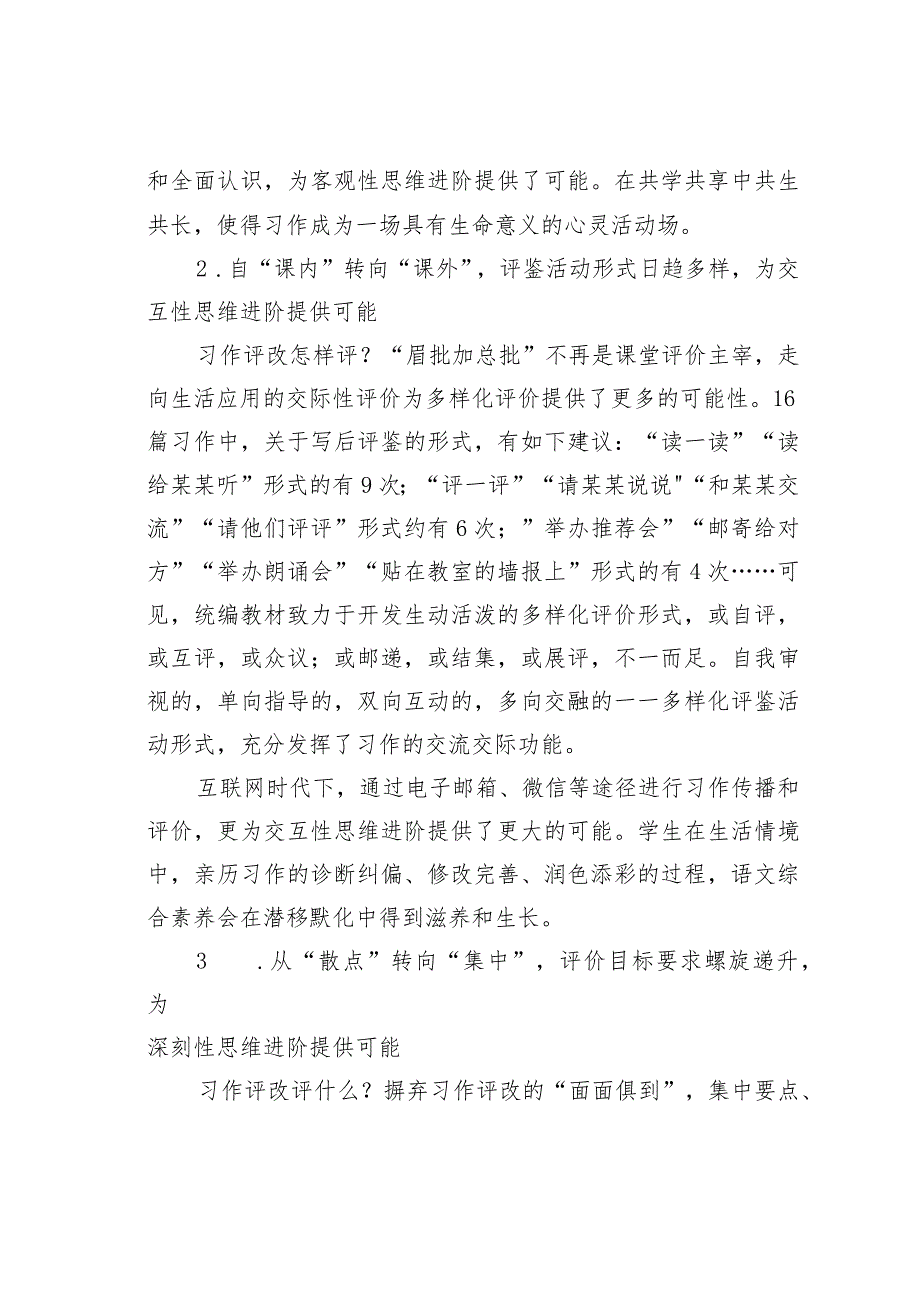 和全面认识，为客观性思维进阶提供了可能。在共学共享中共生
共长，使得习作成为一场具有生命意义的心灵活动场。
2.自“课内”转向“课外”，评鉴活动形式日趋多样，为交
互性思维进阶提供可能
习作评改怎样评？“眉批加总批”不再是课堂评价主宰，走
向生活应用的交际性评价为多样化评价提供了更多的可能性。16
篇习作中，关于写后评鉴的形式，有如下建议：“读一读”“读
给某某听”形式的有9次；“评一评”“请某某说说"“和某某交
流”“请他们评评”形式约有6次；”举办推荐会”“邮寄给对
方”“举办朗诵会”“贴在教室的墙报上”形式的有4次……可
见，统编教材致力于开发生动活泼的多样化评价形式，或自评，
或互评，或众议；或邮递，或结集，或展评，不一而足。自我审
视的，单向指导的，双向互动的，多向交融的一一多样化评鉴活
动形式，充分发挥了习作的交流交际功能。
互联网时代下，通过电子邮箱、微信等途径进行习作传播和
评价，更为交互性思维进阶提供了更大的可能。学生在生活情境
中，亲历习作的诊断纠偏、修改完善、润色添彩的过程，语文综
合素养会在潜移默化中得到滋养和生长。
3 .从“散点”转向“集中”，评价目标要求螺旋递升，
为
深刻性思维进阶提供可能
习作评改评什么？摒弃习作评改的“面面俱到”，集中要点、